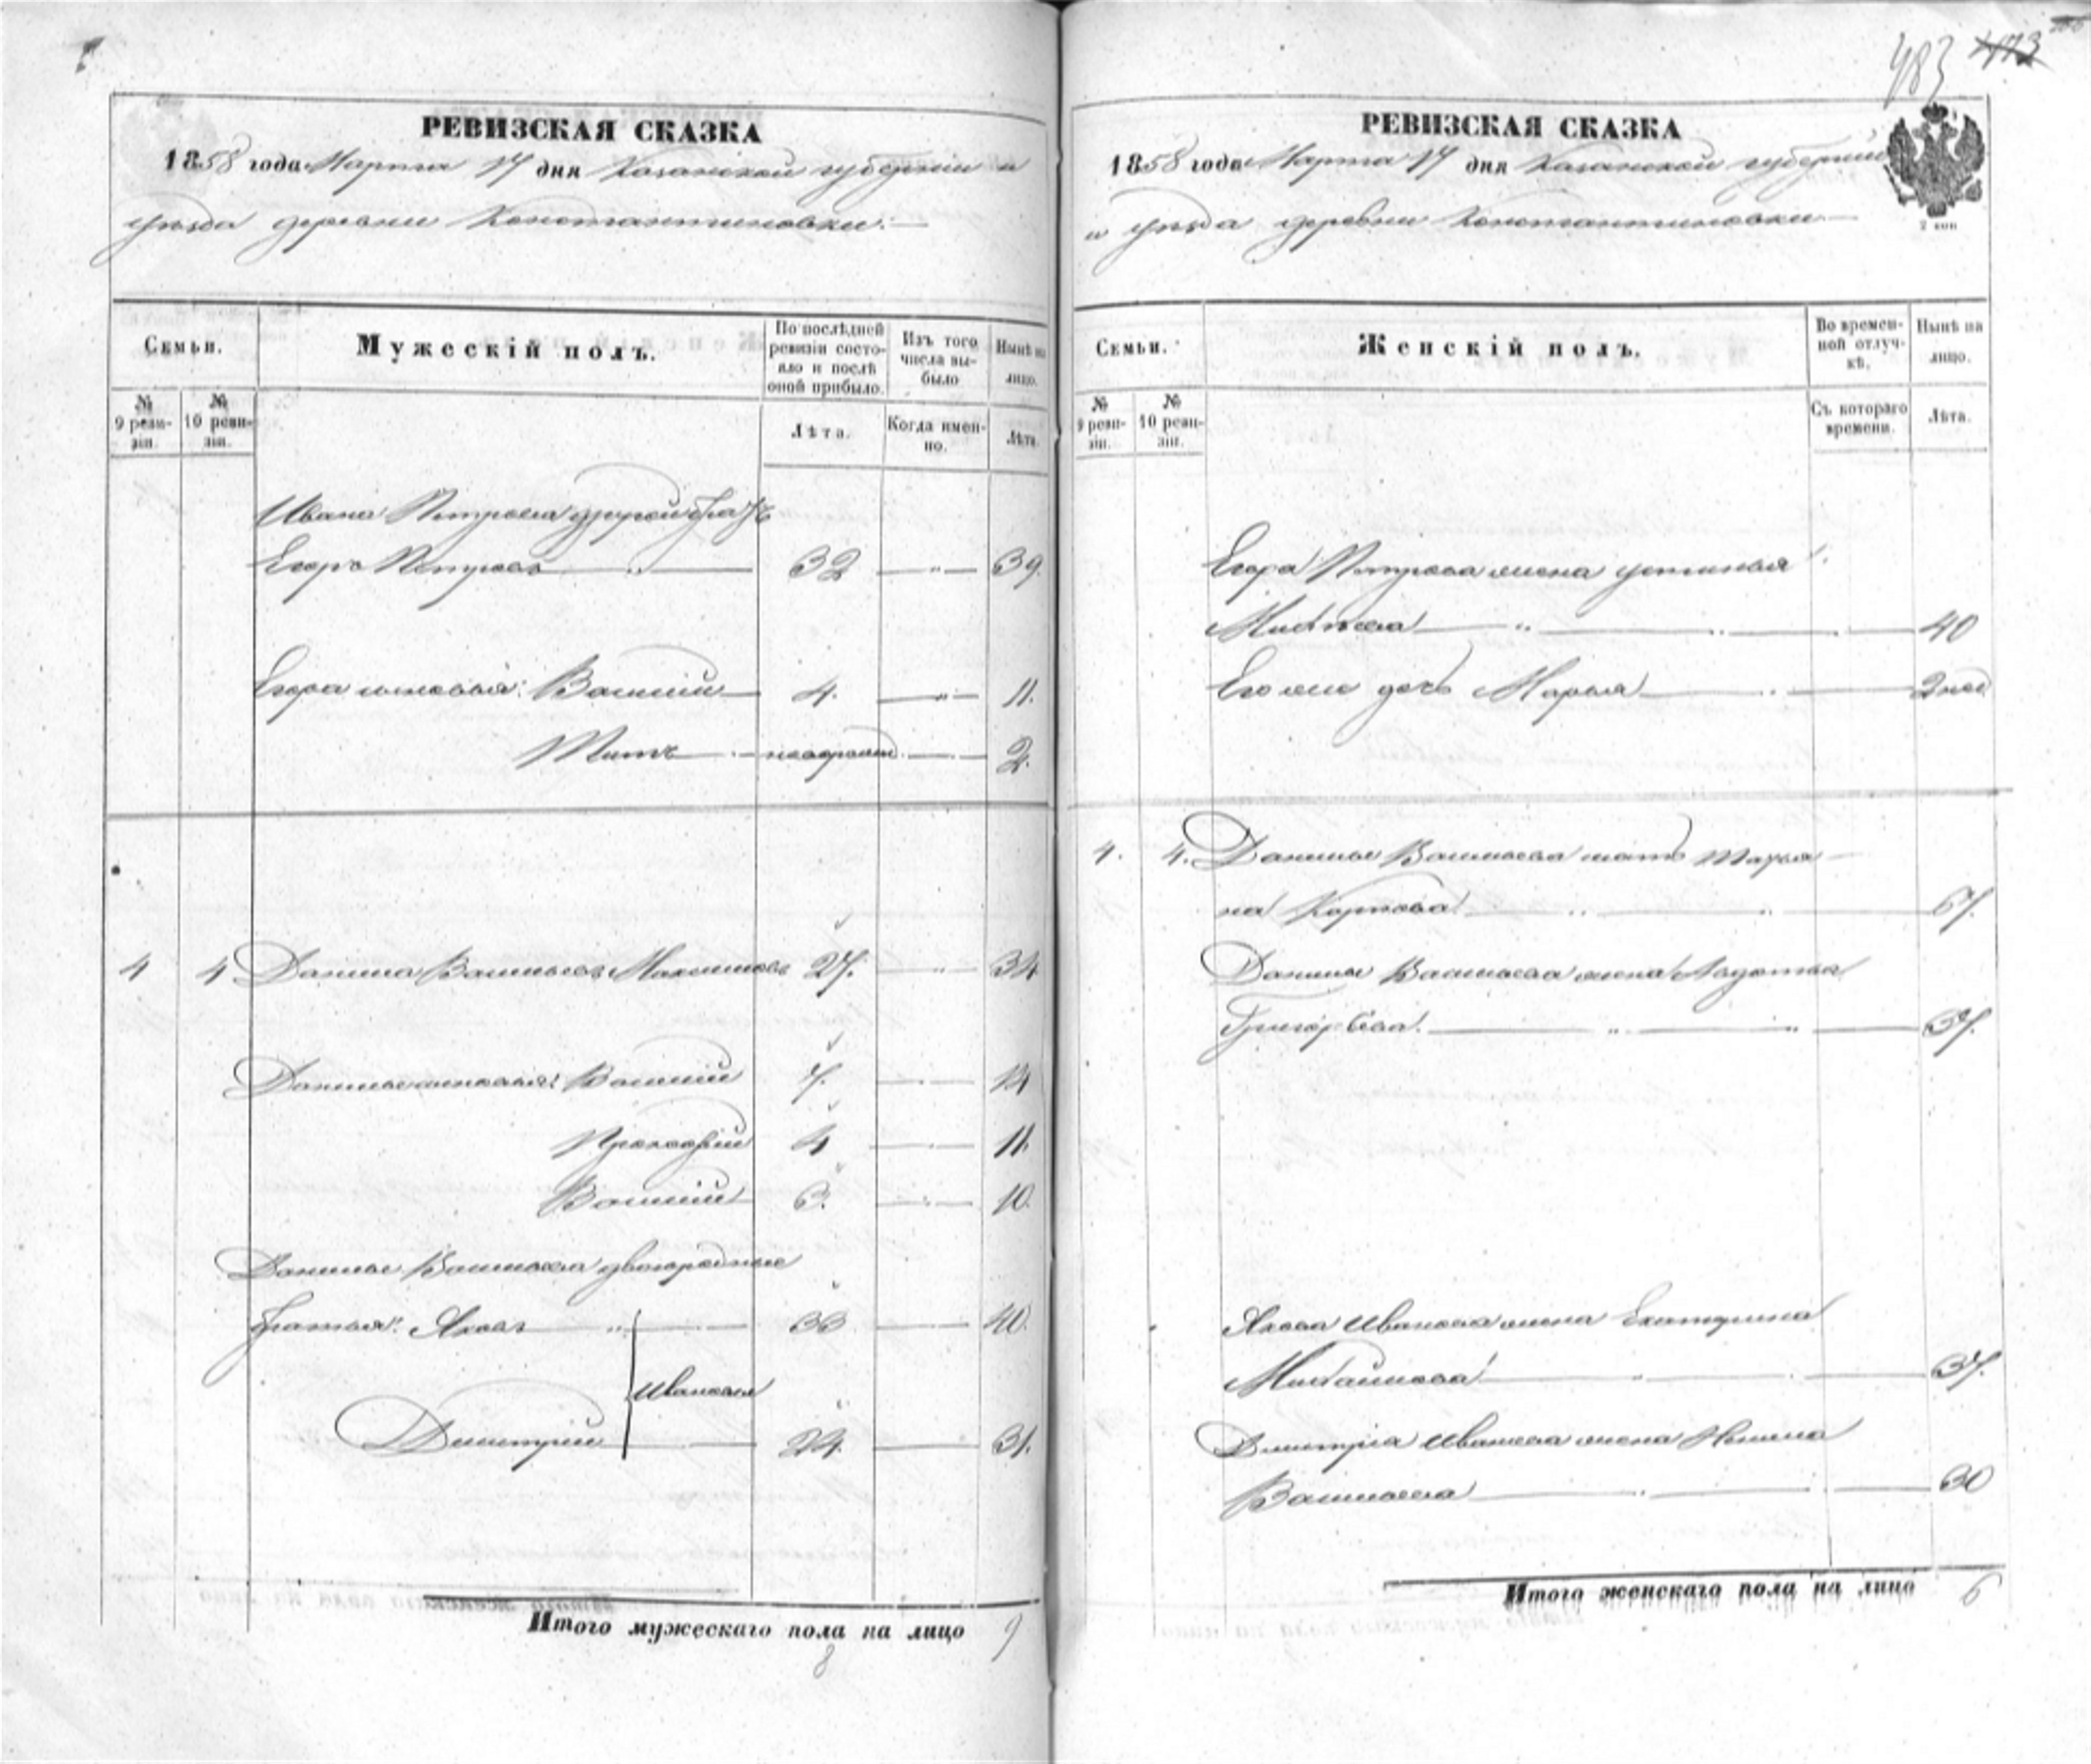 483 473
РЕВИЗСКАЯ СКАЗКА
1858 года Марта 17 дня Казанской губернии и
уѣзда деревни Константиновки:—
Семьи.
Мужескій полъ.
По послѣдней ревизіи состояло и послѣ оной прибыло.
Изъ того числа выбыло
Нынѣ на лицо.
№ 9 ревизіи.
№ 10 ревизіи.
Лѣта.
Когда именно.
Лѣта.
Ивана Петрова другой братъ
Егоръ Петровъ 32 39.
Егора сыновья: Василий 4. 11.
Титъ 2.
4 4 Данила Васильевъ Максимовъ 27. 34
Данилы сыновья: Василий 7. 14
Прокофий 4 11.
Василий 3. 10.
Данилы Васильева двоюродные
братья: Яковъ 33 40.
Ивановы
Дмитрий 24. 31.
Итого мужескаго пола на лицо 9
8
РЕВИЗСКАЯ СКАЗКА
1858 года Марта 17 дня Казанской губернии
и уѣзда деревни Константиновки—
2 коп
Семьи.
Женскій полъ.
Во временной отлучкѣ.
Нынѣ на лицо.
№ 9 ревизіи.
№ 10 ревизіи.
Съ котораго времени.
Лѣта.
Егора Петрова жена Устинья
40
Его же дочь Марья 2 нед
4. 4. Данилы Васильева мать Марья-
на Карпова 67.
Данилы Васильева жена Авдотья
Григорьева. 37.
Якова Иванова жена Екатерина
Михайлова 37.
Дмитрія Иванова жена
Васильева 30
Итого женскаго пола на лицо 6